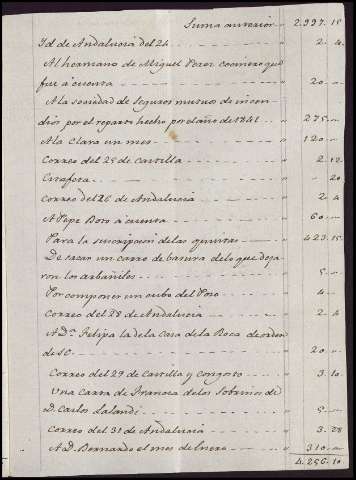 Suma anterior - " 2.997. 18
Yd. de Andalucia del 24 - - - - " 2. 4
Al hermano de Miguel Perez cosnero que
fué á cuenta - - - - " 20 "
A la sociedad de seguros mutuos de incen-
dios por el reparto hecho por el año de 1841 - " 275 "
A la Clara un mes - - - - " 120 "
Correo del 25 de Castilla - - - - " 2. 12
- - - - " 20
Correo del 26 de Andalucia - - - - " 2. 4
A Pepe Boro á cuenta - - - - " 60 "
Para la suscripcion de las quintas - - " 423. 15
De sacar un carro de basura de lo que deja
ron los arbañiles - - - - " 5 "
Por componer un cubo del Poso - - - " 4 "
Correo del 28 de Andalucia - - - - " 2. 4
A Dª. Felipa la de la Casa de la Boca de orden
de SC. - - - - " 20 "
Correo del 29 de Castilla y Congosto - - " 3. 10
Una Carta de Francia de los Sobrinos de
D. Carlos Lalande - - - - " 5 "
Correo del 31 de Andalucia - - - " 3. 28
A D. Bernardo el mes de Enero - - " 310 "
4.256. 10